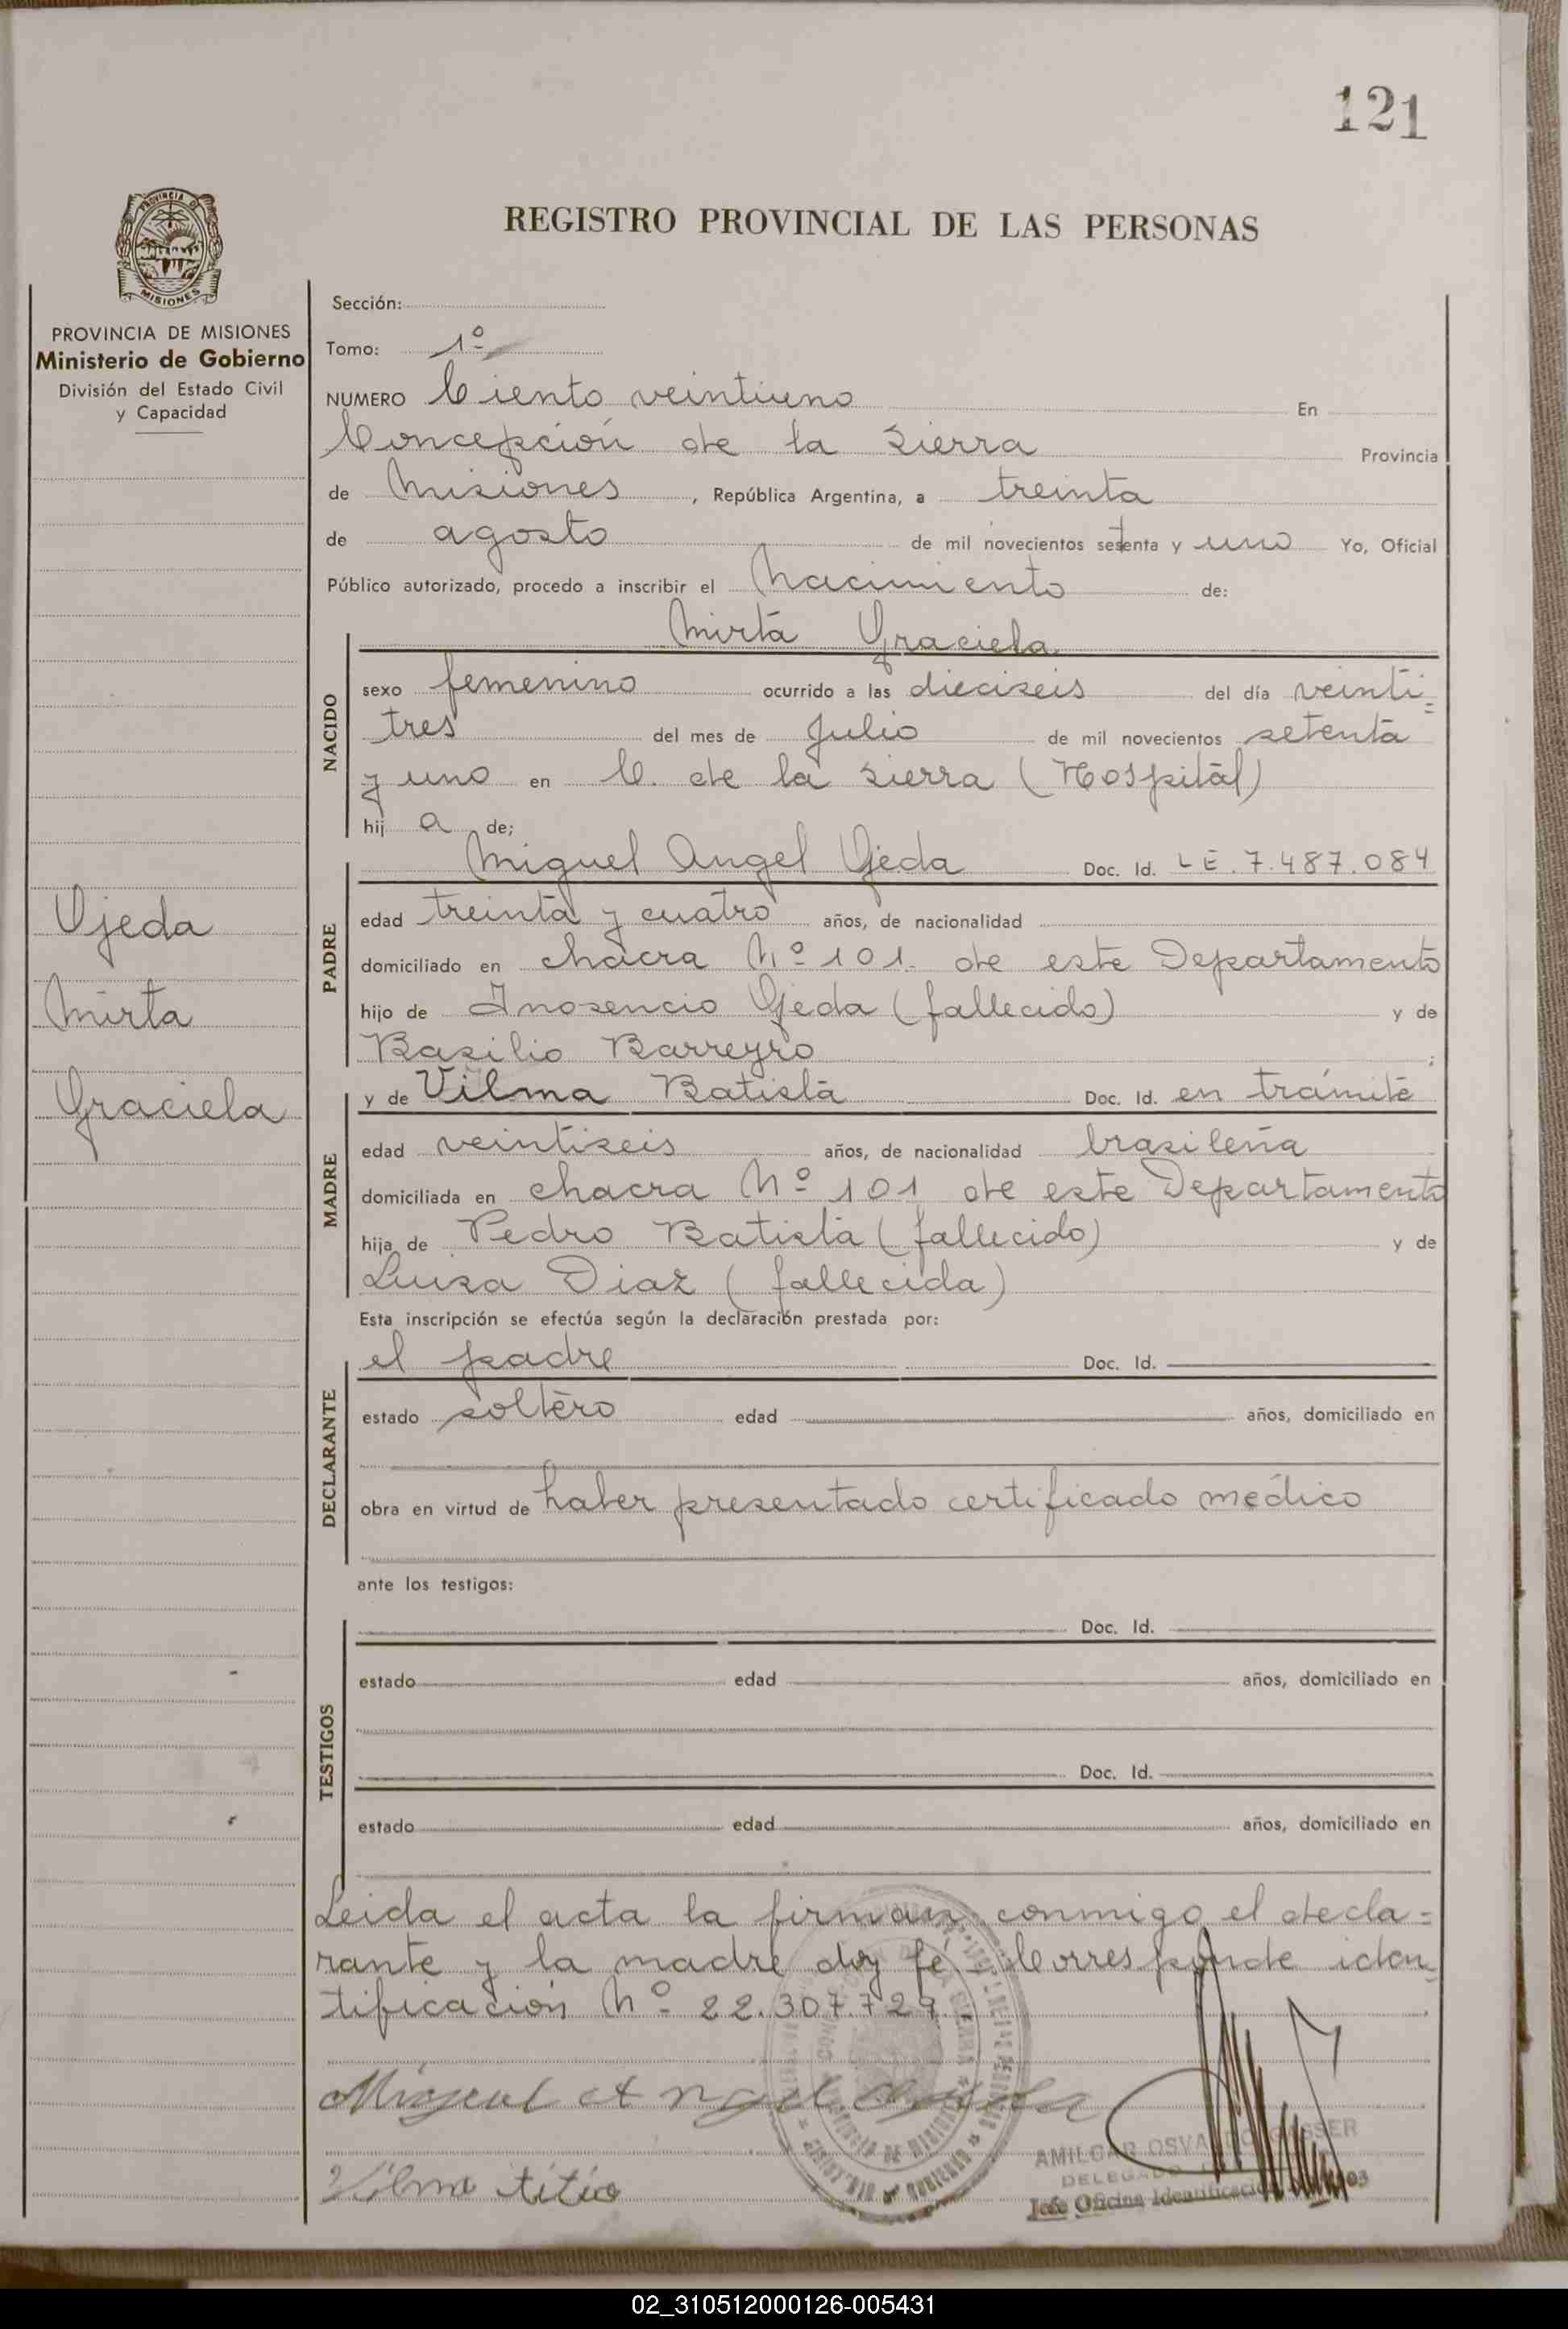 121
REGISTRO PROVINCIAL DE LAS PERSONAS
PROVINCIA DE MISIONES
Ministerio de Gobierno
División del Estado Civil
y Capacidad
Ojeda
Mirta
Graciela
Sección:
Tomo: 1º
NUMERO Ciento veintiuno En
Concepción de la Sierra Provincia
de Misiones, República Argentina, a treinta
de agosto de mil novecientos setenta y uno Yo, Oficial
Público autorizado, procedo a inscribir el Nacimiento de:
NACIDO
Mirta Graciela
sexo femenino ocurrido a las dieciseis del día veinti=
tres del mes de Julio de mil novecientos setenta
y uno en C. de la Sierra (Hospital)
hij a de;
PADRE
Miguel Angel Ojeda Doc. Id. LE. 7.487.084
edad treinta y cuatro años, de nacionalidad
domiciliado en chacra Nº 101 de este Departamento
hijo de Inosencio Ojeda (fallecido) y de
Basilio Barreyro ;
MADRE
y de Vilma Batista Doc. Id. en trámite
edad veintiseis años, de nacionalidad brasileña
domiciliada en chacra Nº 101 de este Departamento
hija de Pedro Batista (fallecido) y de
Luisa Diaz (fallecida)
Esta inscripción se efectúa según la declaración prestada por:
DECLARANTE
el padre Doc. Id.
estado soltero edad años, domiciliado en
obra en virtud de haber presentado certificado médico
ante los testigos:
TESTIGOS
Doc. Id.
estado edad años, domiciliado en
Doc. Id.
estado edad años, domiciliado en
Leida el acta la firman conmigo el decla=
rante y la madre doy fé.- Corresponde iden
tificación Nº 22.307.729.
Miguel Angel Ojeda
Vilma
AMILCAR OSVALDO GASSER
DELEGADO
Jefe Oficina Identificación
02_310512000126-005431